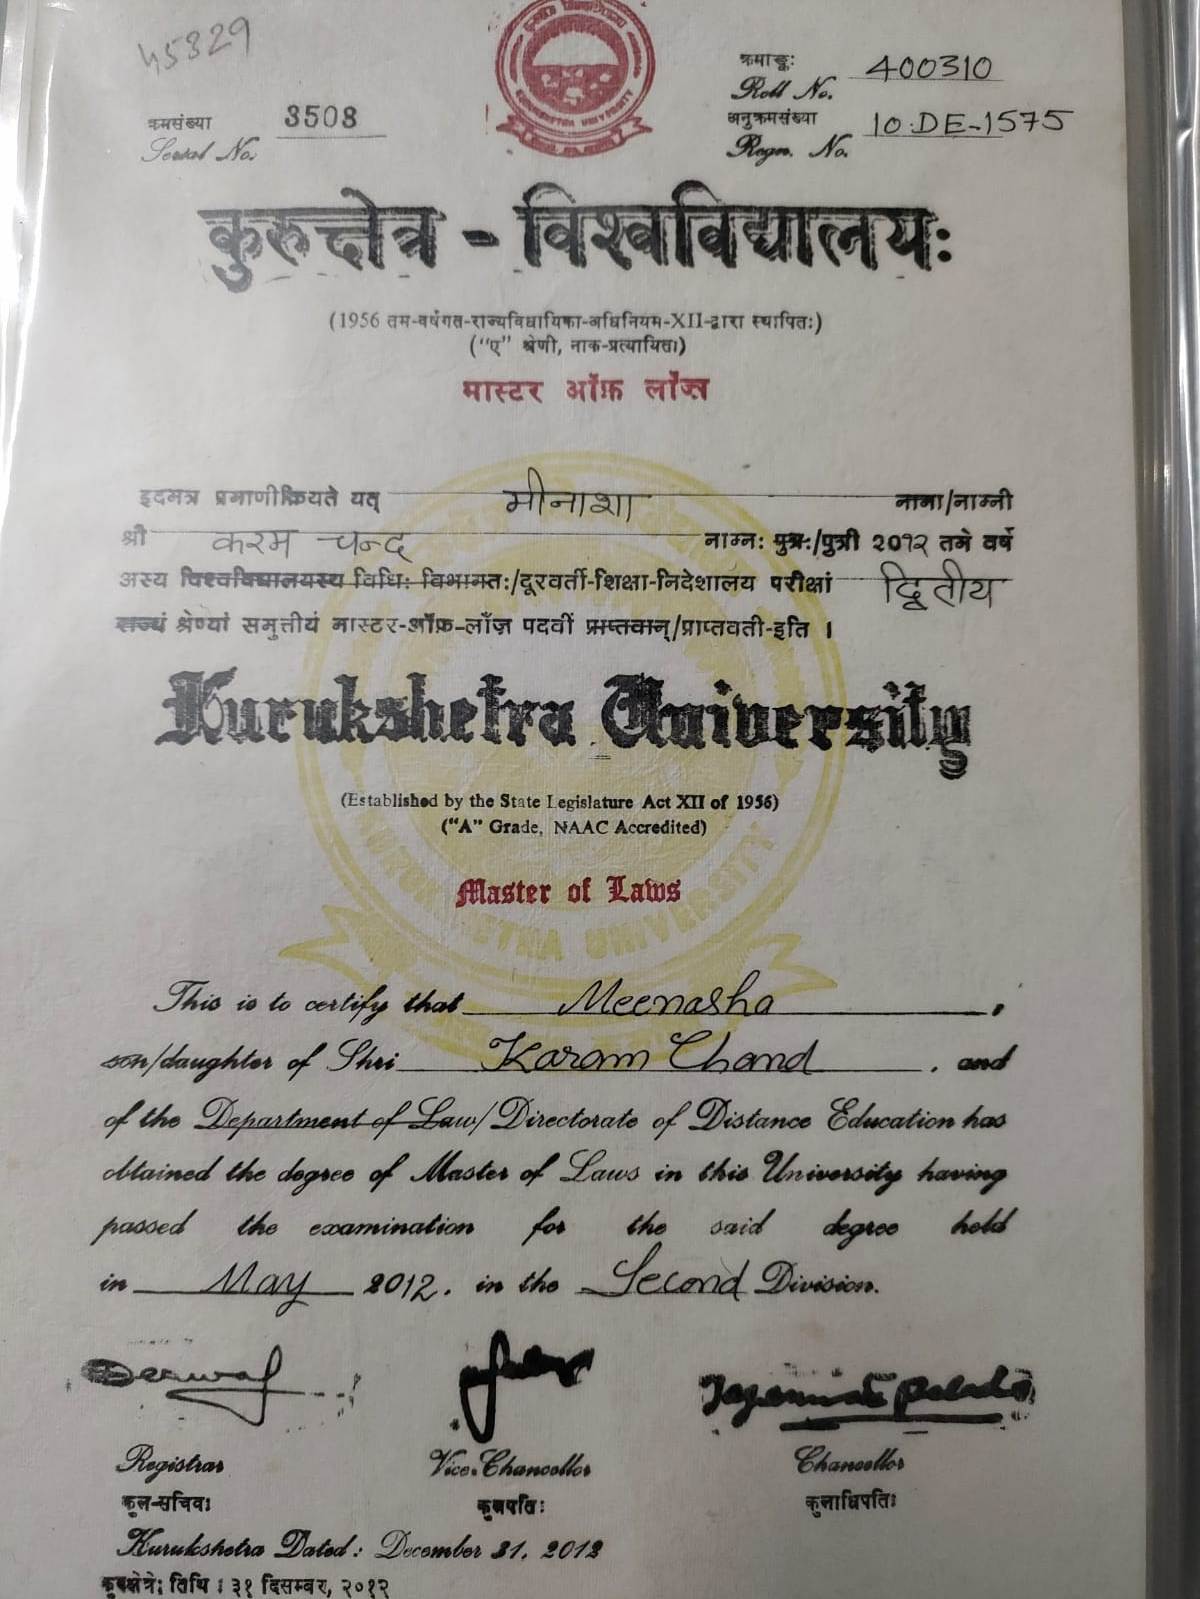 45329
क्रमाङ्क: 400310
Roll No.
क्रमसंख्या 3508
Serial No.
अनुक्रमसंख्या 10.DE-1575
Regn. No.
KURUKSHETRA UNIVERSITY
कुरुक्षेत्र - विश्वविद्यालय:
(1956 तम-वर्षगत-राज्यविधायिका-अधिनियम-XII-द्वारा स्थापित:)
("ए" श्रेणी, नाक-प्रत्यायित:)
मास्टर ऑफ़ लॉज़
इदमत्र प्रमाणीक्रियते यत् मीनाशा नामा/नाम्नी
श्री करम चन्द नाम्न: पुत्र:/पुत्री २०१२ तमे वर्षे
अस्य विश्वविद्यालयस्य विधि: विभागत:/दूरवर्ती-शिक्षा-निदेशालय परीक्षां द्वितीय
श्रेण्यां समुत्तीर्य मास्टर-ऑफ़-लॉज़ पदवीं प्राप्तवान्/प्राप्तवती-इति ।
Kurukshetra University
(Established by the State Legislature Act XII of 1956)
("A" Grade, NAAC Accredited)
Master of Laws
KURUKSHETRA UNIVERSITY
This is to certify that Meenasha,
son/daughter of Shri Karam Chand, and
of the Department of Law/Directorate of Distance Education has
obtained the degree of Master of Laws in this University having
passed the examination for the said degree held
in May 2012, in the Second Division.
Registrar Vice-Chancellor Chancellor
कुल-सचिव: कुलपति: कुलाधिपति:
Kurukshetra Dated: December 31, 2012
कुरुक्षेत्रे: तिथि : ३१ दिसम्बर, २०१२